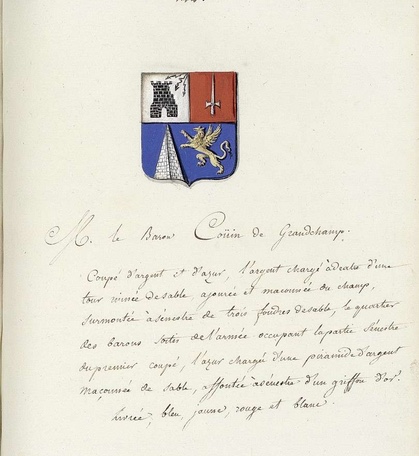 M. le Baron Coüin de Grandchamp.
Coupé d'argent et d'azur, l'argent chargé àdextre d'une
tour ruinée de sable, ajourée et maçonnée du champ,
surmontée àsénestre de trois foudres desable, le quartier
des barons sortis del'armée occupant lapartie Sénestre
dupremier coupé, l'azur chargé d'une piramide d'argent
maçonnée de sable, affrontée àsénestre d'un griffon d'or.
Livrée, bleu, jaune, rouge et blanc.